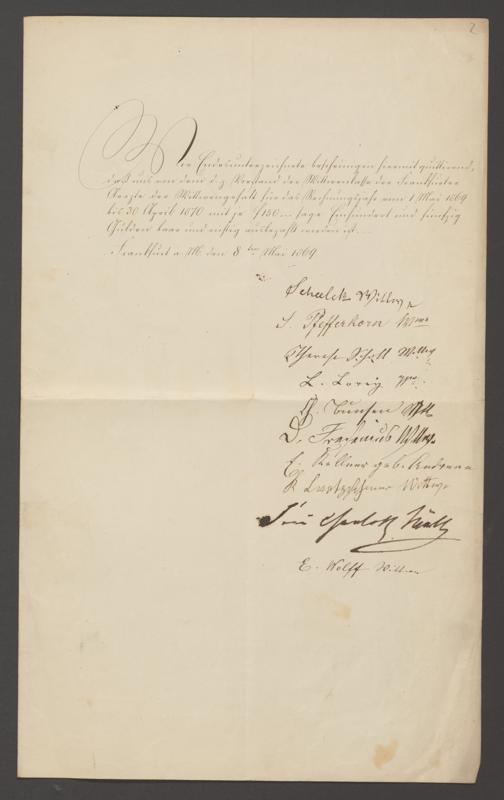 2
Wir Endesunterzeichnete bescheinigen hiermit quittirend,
daß uns von dem d. z. Vorstand der Wittwenkasse der Frankfurter
Aerzte der Wittwengehalt für das Rechnungsjahr vom 1 Mai 1869
bis 30 April 1870 mit je f 150 sage Einhundert und fünfzig
Gulden baar und richtig ausbezahlt worden ist.
Frankfurt a. M. den 8 ten Mai 1869
Schalck Wittwe
S. Pfefferkorn Wwe
Therese Schott Wittwe
L. Lorey Wwe
Bunsen Wtt
D. Wittwe
E. Kellner geb. Andreae
K Wittwe
Charlotte
E. Wolff Wittwe